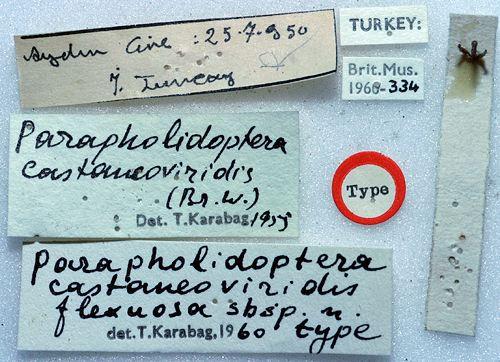 Aydın Çine : 25.7.950
TURKEY:
Brit.Mus.
1960-334
Parapholidoptera
castaneoviridis
(Br.W.)
Det. T.Karabag, 1955
Type
Parapholidoptera
castaneoviridis
flexuosa sbsp. n.
det.T.Karabag, 1960 type